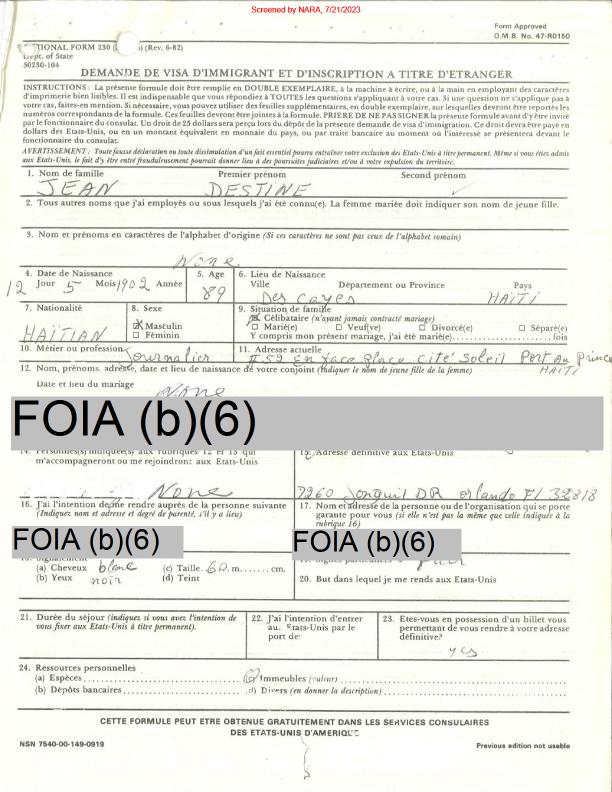 Screened by NARA, 7/21/2023
Form Approved
O.M.B. No. 47-R0150
TIONAL FORM 230 ( ) (Rev. 6-82)
Dept. of State
50230-104
DEMANDE DE VISA D'IMMIGRANT ET D'INSCRIPTION A TITRE D'ETRANGER
INSTRUCTIONS : La présente formule doit être remplie en DOUBLE EXEMPLAIRE, à la machine à écrire, ou à la main en employant des caractères
d'imprimerie bien lisibles. Il est indispensable que vous répondiez à TOUTES les questions s'appliquant à votre cas. Si une question ne s'applique pas à
votre cas, faites-en mention. Si nécessaire, vous pouvez utiliser des feuilles supplémentaires, en double exemplaire, sur lesquelles devront être reportés les
numéros correspondants de la formule. Ces feuilles devront être jointes à la formule. PRIERE DE NE PAS SIGNER la présente formule avant d'y être invité
par le fonctionnaire du consulat. Un droit de 25 dollars sera perçu lors du dépôt de la présente demande de visa d'immigration. Ce droit devra être payé en
dollars des Etats-Unis, ou en un montant équivalent en monnaie du pays, ou par traite bancaire au moment où l'intéressé se présentera devant le
fonctionnaire du consulat.
AVERTISSEMENT : Toute fausse déclaration ou toute dissimulation d'un fait essentiel pourra entraîner votre exclusion des Etats-Unis à titre permanent. Même si vous étiez admis
aux Etats-Unis, le fait d'y être entré frauduleusement pourrait donner lieu à des poursuites judiciaires et/ou à votre expulsion du territoire.
1. Nom de famille Premier prénom Second prénom
JEAN DESTINE
2. Tous autres noms que j'ai employés ou sous lesquels j'ai été connu(e). La femme mariée doit indiquer son nom de jeune fille.
3. Nom et prénoms en caractères de l'alphabet d'origine (Si ces caractères ne sont pas ceux de l'alphabet romain)
None
4. Date de Naissance
12 Jour 5 Mois 1902 Année
5. Age
89
6. Lieu de Naissance
Ville Département ou Province Pays
Des Cayes HAITI
7. Nationalité
HAITIAN
8. Sexe
☒ Masculin
☐ Féminin
9. Situation de famille
☒ Célibataire (n'ayant jamais contracté mariage)
☐ Marié(e) ☐ Veuf(ve) ☐ Divorcé(e) ☐ Séparé(e)
Y compris mon présent mariage, j'ai été marié(e) fois
10. Métier ou profession
Journalier
11. Adresse actuelle
#52 En face Place Cité Soleil Port Au Prince
HAITI
12. Nom, prénoms, adresse, date et lieu de naissance de votre conjoint (Indiquer le nom de jeune fille de la femme)
Date et lieu du mariage
None
FOIA (b)(6)
14. Personnes(s) indiquée(s) aux rubriques 12 et 13 qui
m'accompagneront ou me rejoindront aux Etats-Unis
None
15. Adresse définitive aux Etats-Unis
7260 Jonquil DR orlando Fl 32818
16. J'ai l'intention de me rendre auprès de la personne suivante
(Indiquez nom et adresse et degré de parenté, s'il y a lieu)
FOIA (b)(6)
17. Nom et adresse de la personne ou de l'organisation qui se porte
garante pour vous (si elle n'est pas la même que celle indiquée à la
rubrique 16)
FOIA (b)(6)
(a) Cheveux blanc (c) Taille 60 m. cm.
(b) Yeux noir (d) Teint
20. But dans lequel je me rends aux Etats-Unis
21. Durée du séjour (indiquez si vous avez l'intention de
vous fixer aux Etats-Unis à titre permanent).
22. J'ai l'intention d'entrer
au. Etats-Unis par le
port de:
23. Etes-vous en possession d'un billet vous
permettant de vous rendre à votre adresse
définitive?
yes
24. Ressources personnelles
(a) Espèces (c) Immeubles (valeur)
(b) Dépôts bancaires (d) Divers (en donner la description)
CETTE FORMULE PEUT ETRE OBTENUE GRATUITEMENT DANS LES SERVICES CONSULAIRES
DES ETATS-UNIS D'AMERIQUE
NSN 7540-00-149-0919
Previous edition not usable